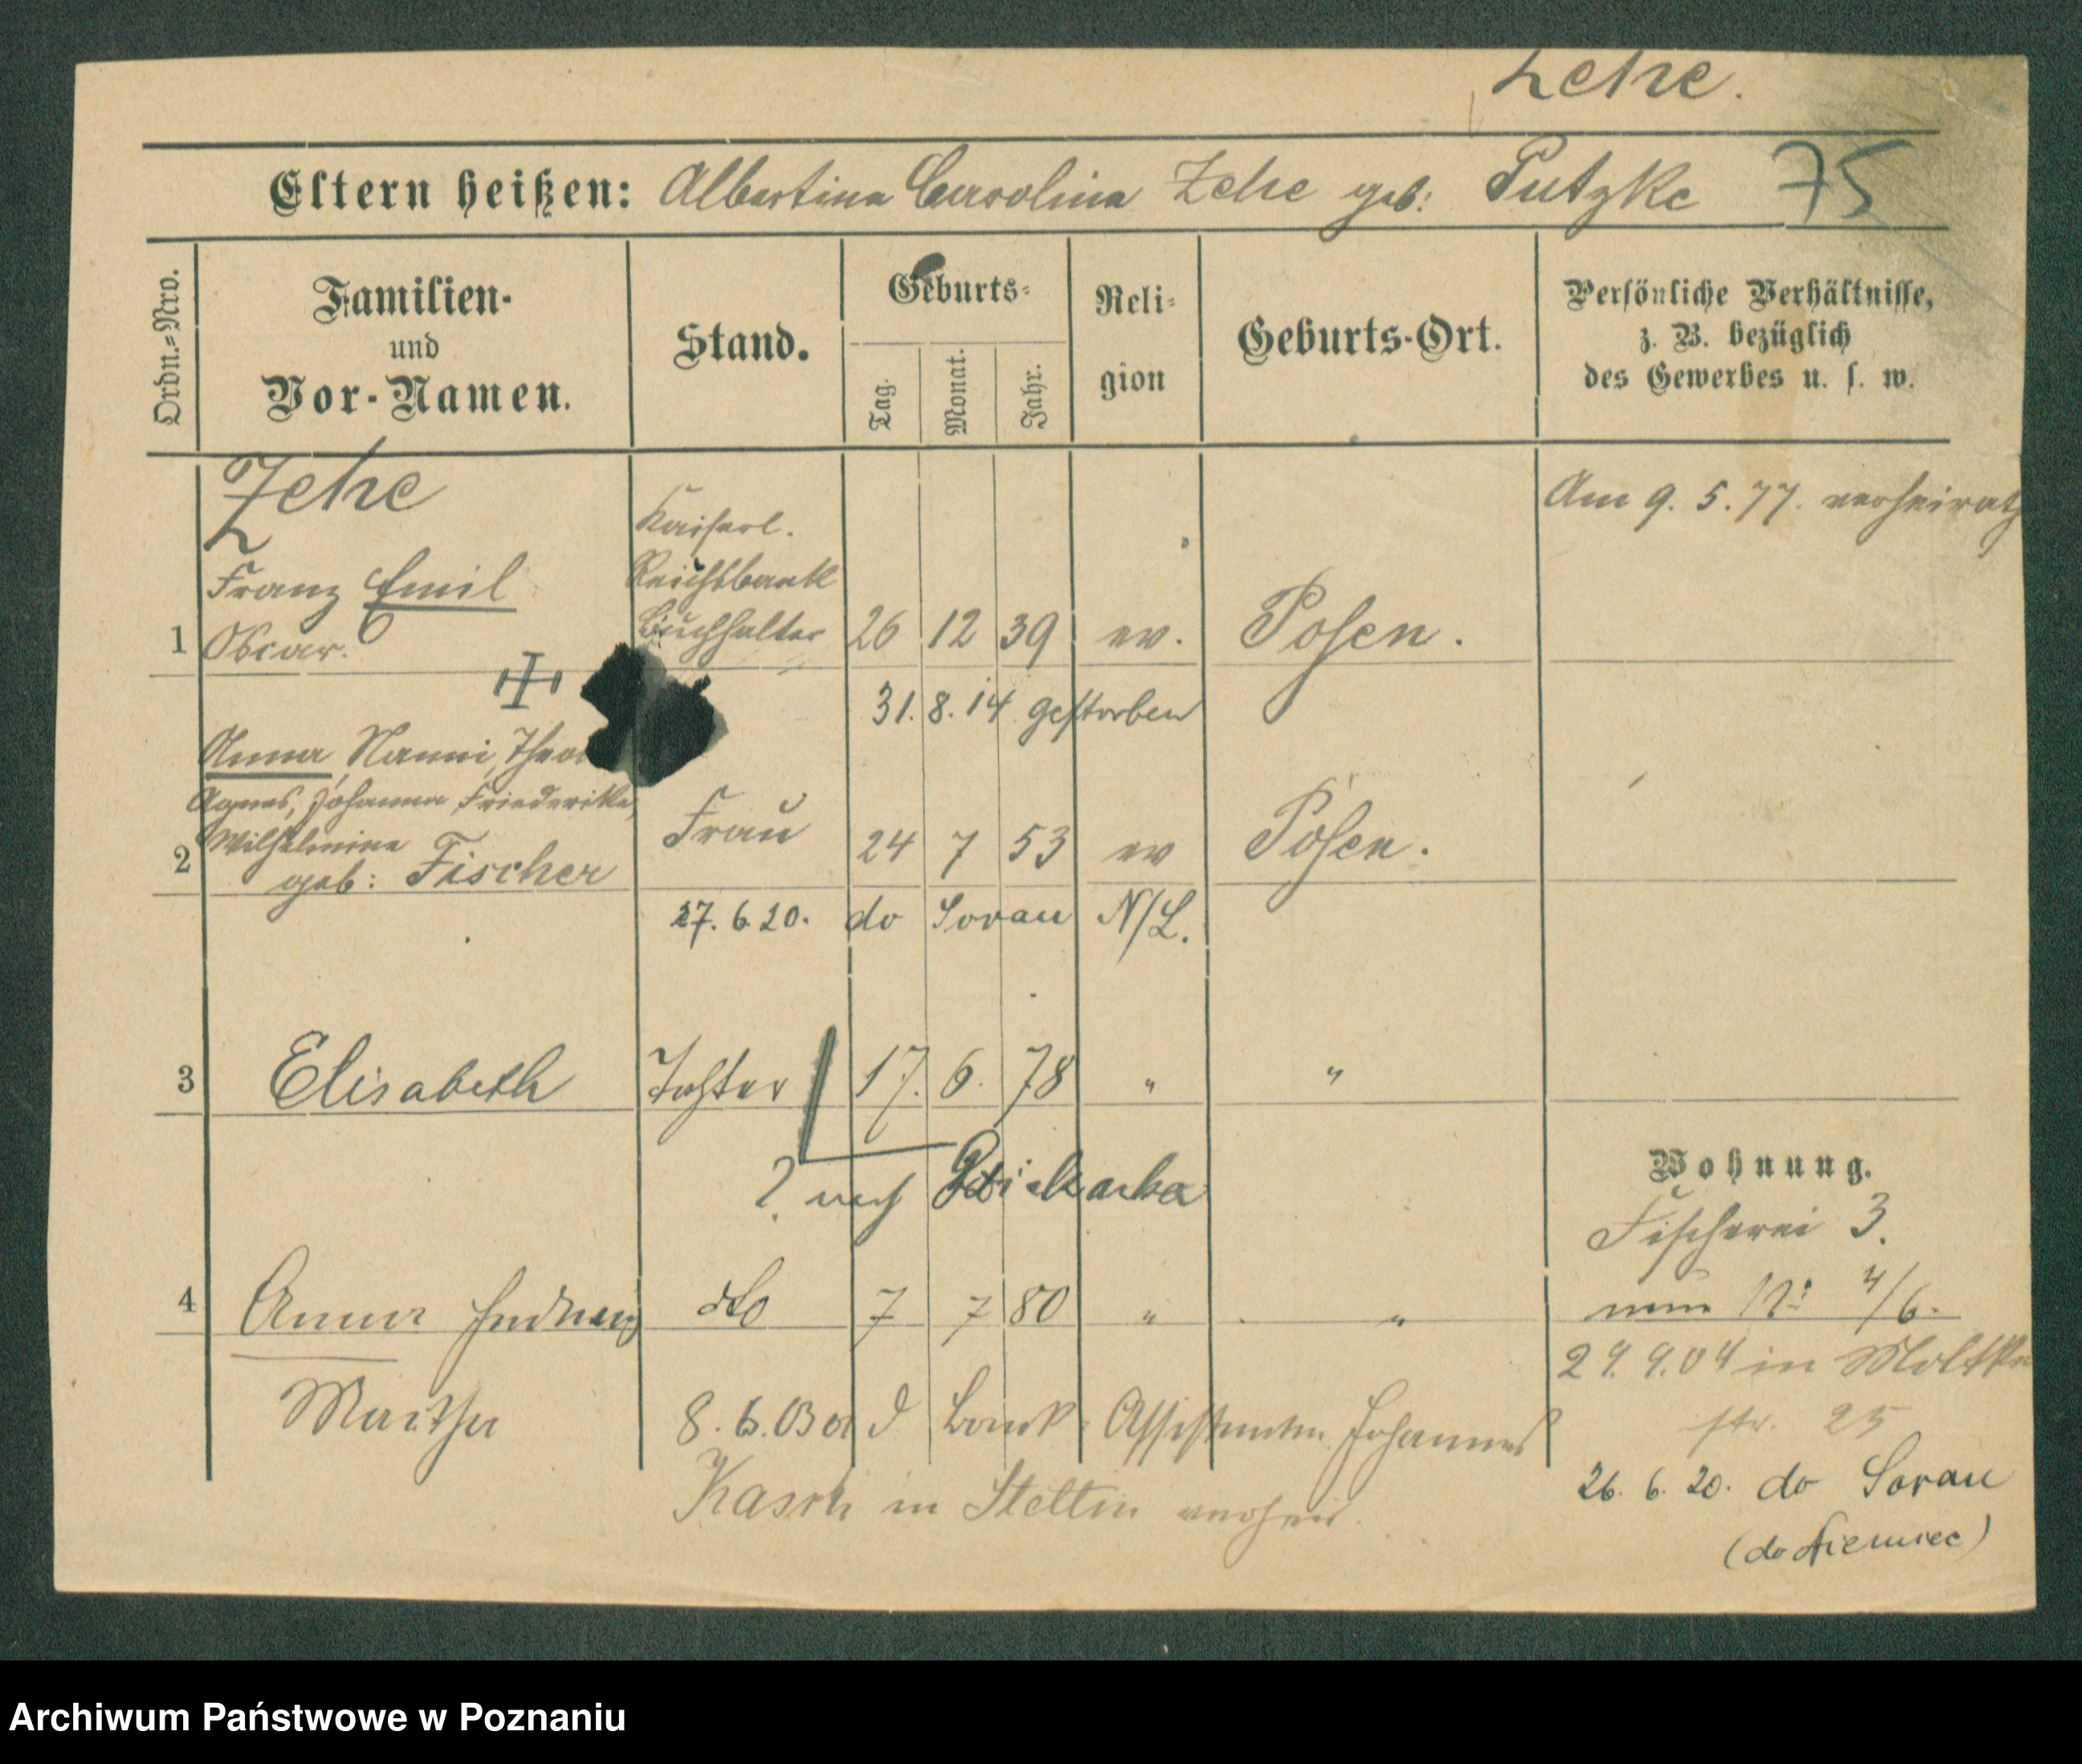 Zehe.
Eltern heißen: Albertina Carolina Zehe geb: Putzke 75
Ordn.-Nro.
Familien-
und
Vor-Namen.
Stand.
Geburts-
Tag.
Monat.
Jahr.
Reli-
gion
Geburts-Ort.
Persönliche Verhältnisse,
z. B. bezüglich
des Gewerbes u. s. w.
Zehe
Am 9. 5. 77. verheirath
Kaiserl.
Franz Emil
Reichsbank
1 Oscar. Buchhalter 26 12 39 ev. Posen.
31. 8. 14 gestorben
Anna Nanni, Theo
Agnes, Johanna Friederike,
Wilhelmine
2 geb: Fischer Frau 24 7 53 ev Posen.
27. 6. 20. do Sorau N/L.
3 Elisabeth Tochter 17. 6. 78 " "
? nach
Wohnung.
Fischerei 3.
4 Anna Hedwig dto 7 7 80 " "
nun N: 4/6.
29. 9. 04 in Moltke
str. 25
Martha
8. 6. 03 a d Bank-Assistenten Johannes
Kasch in Stettin verheir.
26. 6. 20. do Sorau
(do Niemiec)
Archiwum Państwowe w Poznaniu